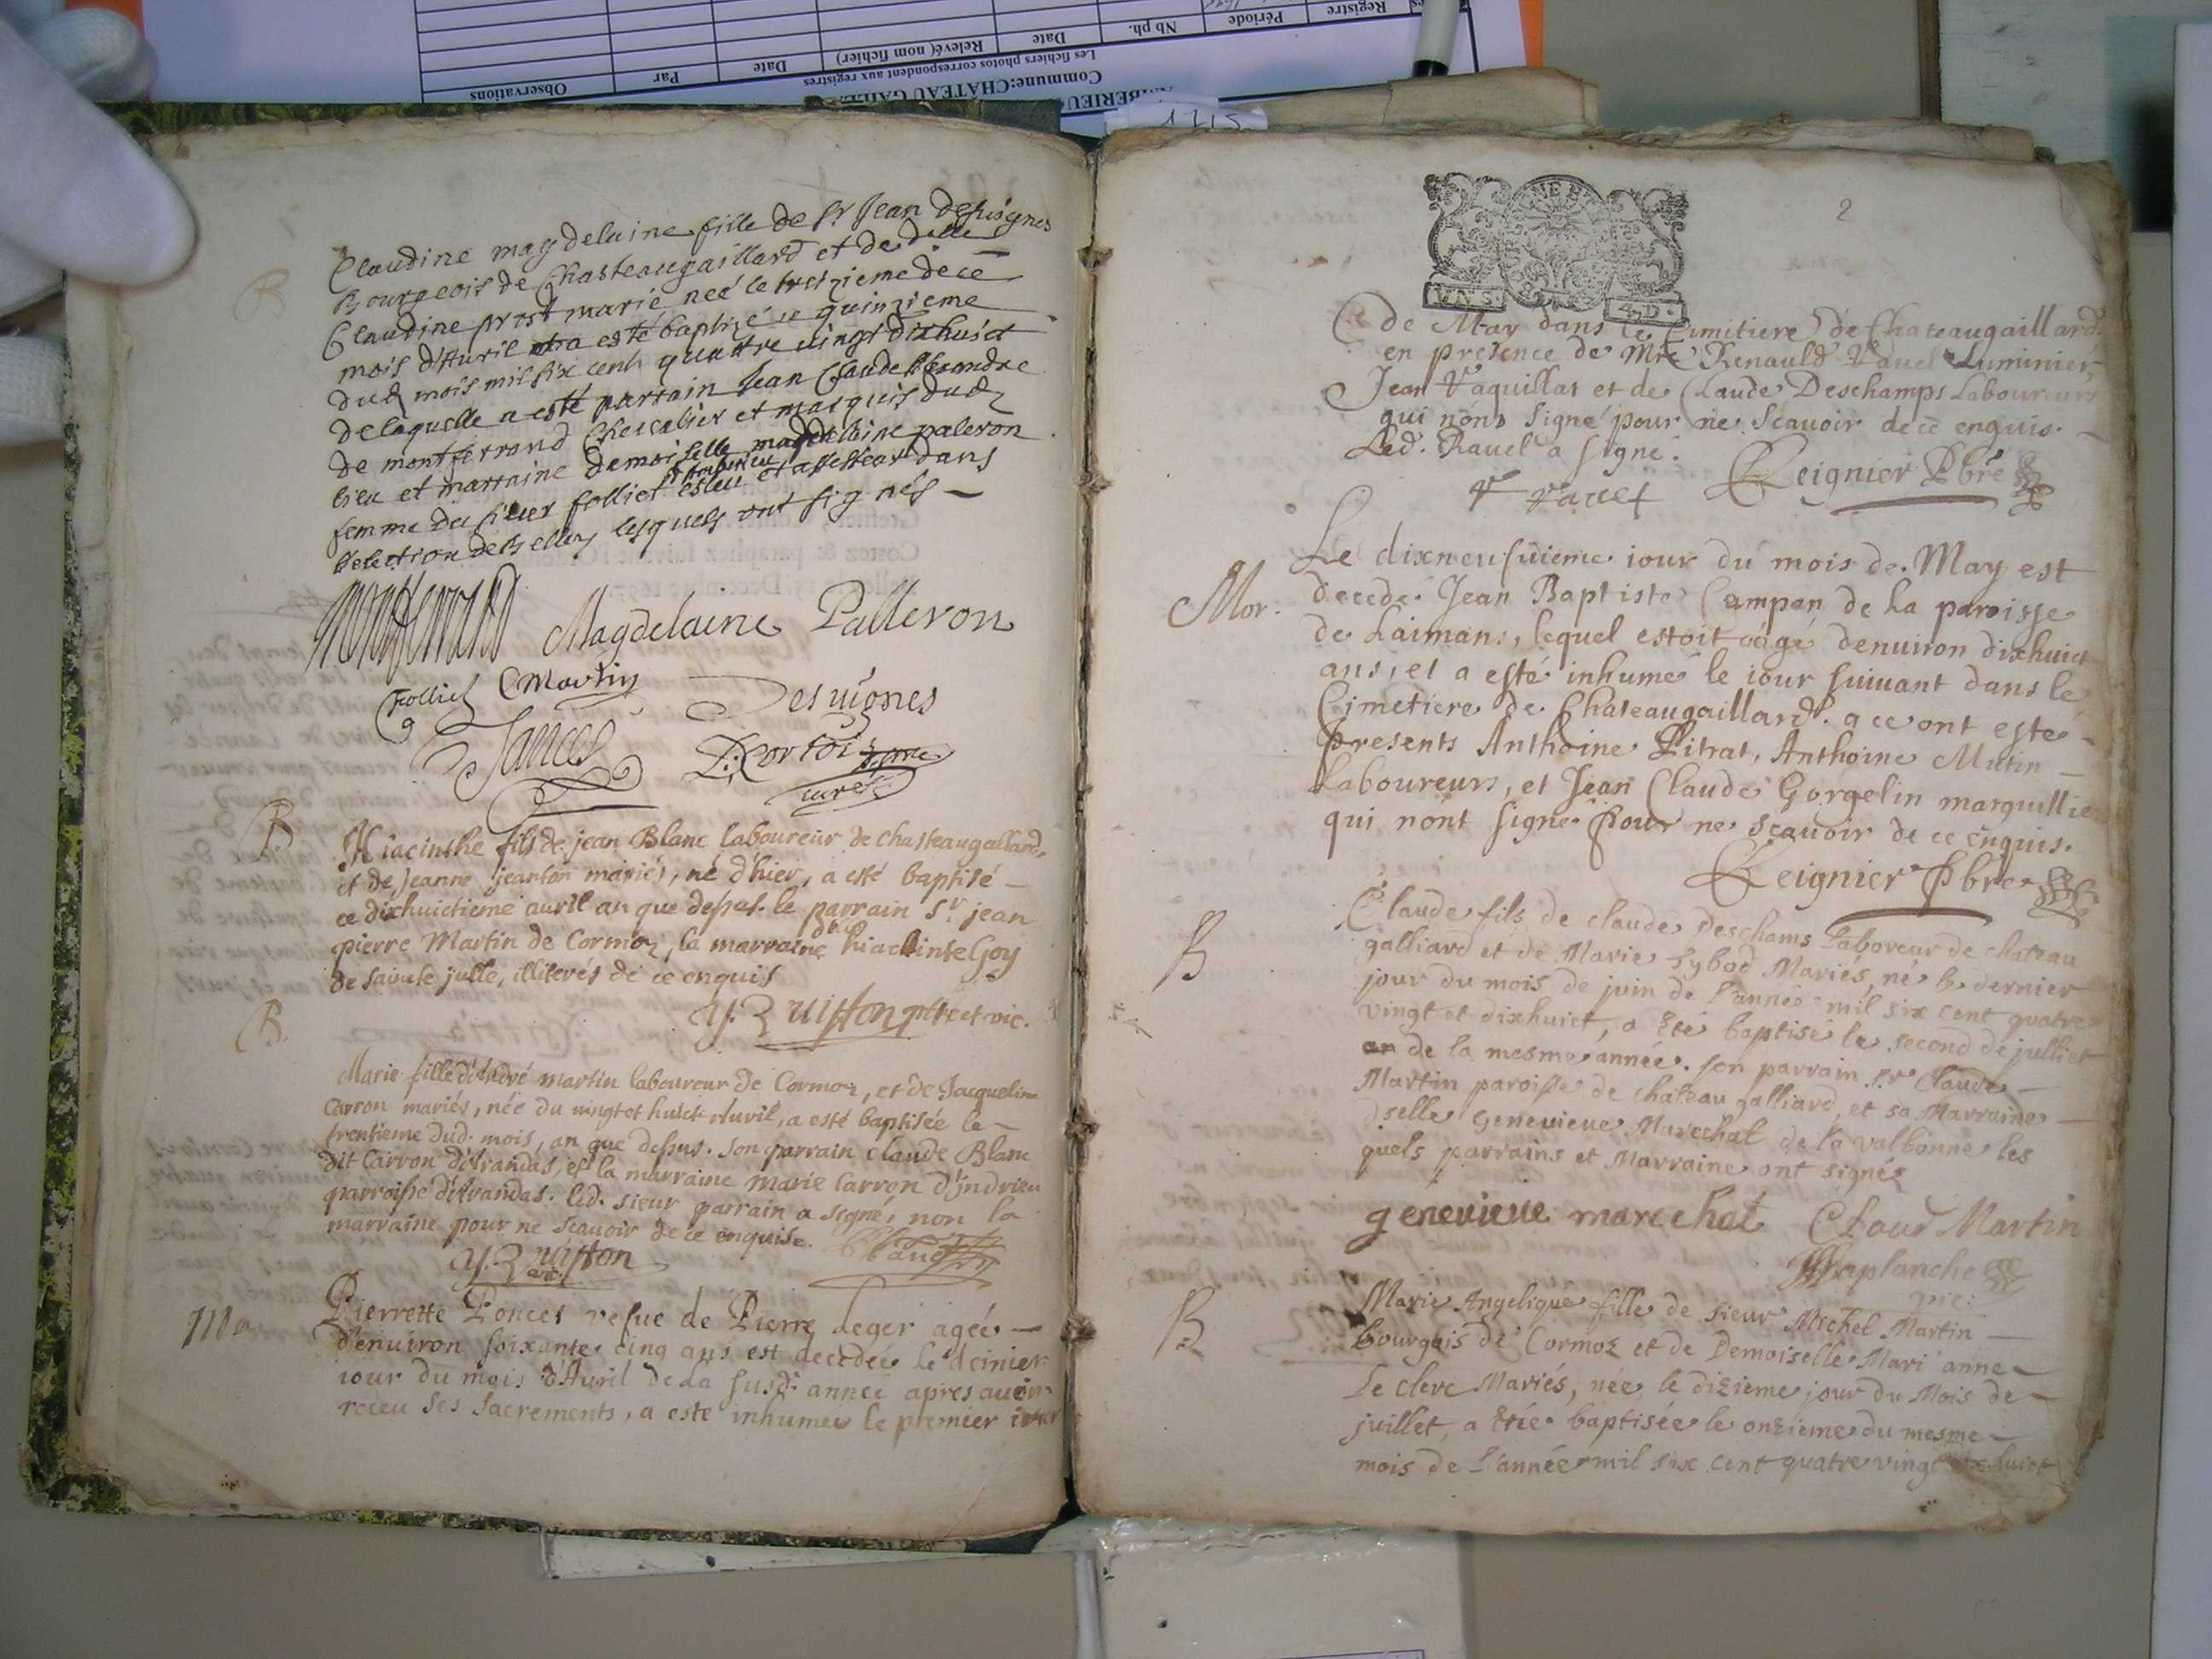 Observations
Par
Date
Relevé( nom fichier)
Date
Nb ph.
Période
Registre
Les fichiers photos correspondent aux registres
Commune:CHÂTEAU GAILL
1715
B
Claudine magdelaine fille de Sr Jean desuignes
Bourgeois de Chasteaugaillard et de delle
Claudine prost marié neé le treizieme de ce
mois d'Auril a esté baptizé le quinzieme
dud mois mil six cent quattre uingt dixhuict
de laquelle a esté parrain Jean Claude Alexandre
de montferrand Cheuallier et marquis dud
lieu et marraine demoiselle magdelaine paleron
femme du sieur folliet esleu et assesseur dans
l'election de Belley lesquels ont signés
Montferrand Magdelaine Palleron
Folliet Martin Desuignes
Jances
curé
B
Hiacinthe fils de jean Blanc laboureur de chasteaugallard
et de jeanne jeanton mariés, né d'hier, a esté baptisé
ce dixhuictieme auril an que dessus. le parrain Sr jean
pierre Martin de Cormoz, la marraine hiacinte Goy
de sainte julle, illiterés de ce enquis
B.
Marie fille d'André martin laboureur de Cormoz, et de Jacqueline
Carron mariés, née du uingt et huict Auril, a esté baptisée le
trentieme dud. mois, an que dessus. son parrain claude Blanc
dit Carron d'Arandas, est la marraine marie Carron d'Indrieu
parroisse d'Arandas. led. sieur parrain a signé, non la
marraine pour ne scauoir de ce enquise.
Mor
Pierrette Poncet vefue de Pierre Leger agée
d'enuiron soixante cinq ans est decedée le dernier
iour du mois d'Auril de la susd. année apres auoir
receu ses sacrements, a esté inhumée le premier iour
2
de May dans le Cimitiere de Chateaugaillard
en presence de Mre Renauld Rauel Luminier,
Jean Vaquillat et de Claude Deschamps Laboureurs
qui nons signé pour ne scauoir de ce enquis.
Led. Rauel a signé.
Reignier Pbre
Mor.
Le dixneufuieme iour du mois de May est
decedé Jean Baptiste Campan de la paroisse
de Laimans, lequel estoit aâgé denuiron dixhuict
ans, et a esté inhumé le iour suiuant dans le
Cimetiere de Chateaugaillard. a ce ont esté
presents Anthoine Pitrat, Anthoine Mutin
Laboureurs, et Jean Claude Gorgelin marguillie
qui nont signé pour ne scauoir de ce enquis.
Reignier Pbre
B
Claude fils de claude Deschams Laboreur de chateau
galliard et de Marie Sybod Mariés, né le dernier
jour du mois de juin de l'année mil six cent quatre
vingt et dixhuict, a été baptisé le second de julliet
de la mesme année. son parrain Sr Claude
Martin paroisse de chateau galliard, et sa Marraine
dselle Geneuieue Marechal de la valbonne les
quels parrains et Marraine ont signés
geneuieue marechal Claud Martin
Laplanche
vic:
B
Marie Angelique fille de sieur Michel Martin
bourgois de Cormoz et de Demoiselle Mari anne
Le clerc Mariés, née le dizieme jour du Mois de
juillet, a étée baptisée le onzieme du mesme
mois de l'année mil six cent quatre vingt dixhuict